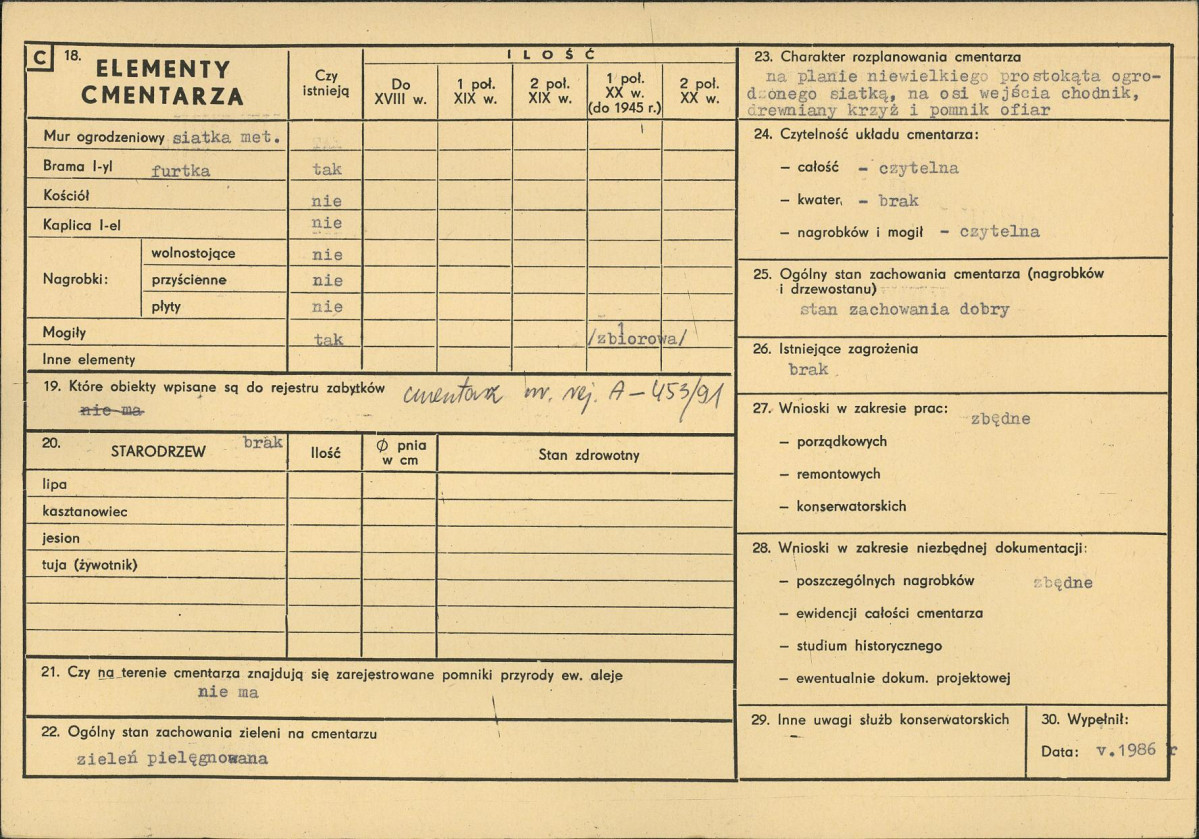 C 18. ELEMENTY
CMENTARZA
Czy
istnieją
ILOŚĆ
Do
XVIII w.
1 poł.
XIX w.
2 poł.
XIX w.
1 poł.
XX w.
(do 1945 r.)
2 poł.
XX w.
Mur ogrodzeniowy siatka met.
Brama I-yl furtka tak
Kościół nie
Kaplica I-el nie
Nagrobki:
wolnostojące nie
przyścienne nie
płyty nie
Mogiły tak 1
/zbiorowa/
Inne elementy
19. Które obiekty wpisane są do rejestru zabytków cmentarz nr. rej. A-453/91
nie ma
20. STARODRZEW brak
Ilość
Ø pnia
w cm
Stan zdrowotny
lipa
kasztanowiec
jesion
tuja (żywotnik)
21. Czy na terenie cmentarza znajdują się zarejestrowane pomniki przyrody ew. aleje
nie ma
22. Ogólny stan zachowania zieleni na cmentarzu
zieleń pielęgnowana
23. Charakter rozplanowania cmentarza
na planie niewielkiego prostokąta ogro-
dzonego siatką, na osi wejścia chodnik,
drewniany krzyż i pomnik ofiar
24. Czytelność układu cmentarza:
– całość - czytelna
– kwater, - brak
– nagrobków i mogił - czytelna
25. Ogólny stan zachowania cmentarza (nagrobków
i drzewostanu)
stan zachowania dobry
26. Istniejące zagrożenia
brak
27. Wnioski w zakresie prac: zbędne
– porządkowych
– remontowych
– konserwatorskich
28. Wnioski w zakresie niezbędnej dokumentacji:
– poszczególnych nagrobków zbędne
– ewidencji całości cmentarza
– studium historycznego
– ewentualnie dokum. projektowej
29. Inne uwagi służb konserwatorskich
30. Wypełnił:
Data: v.1986 r